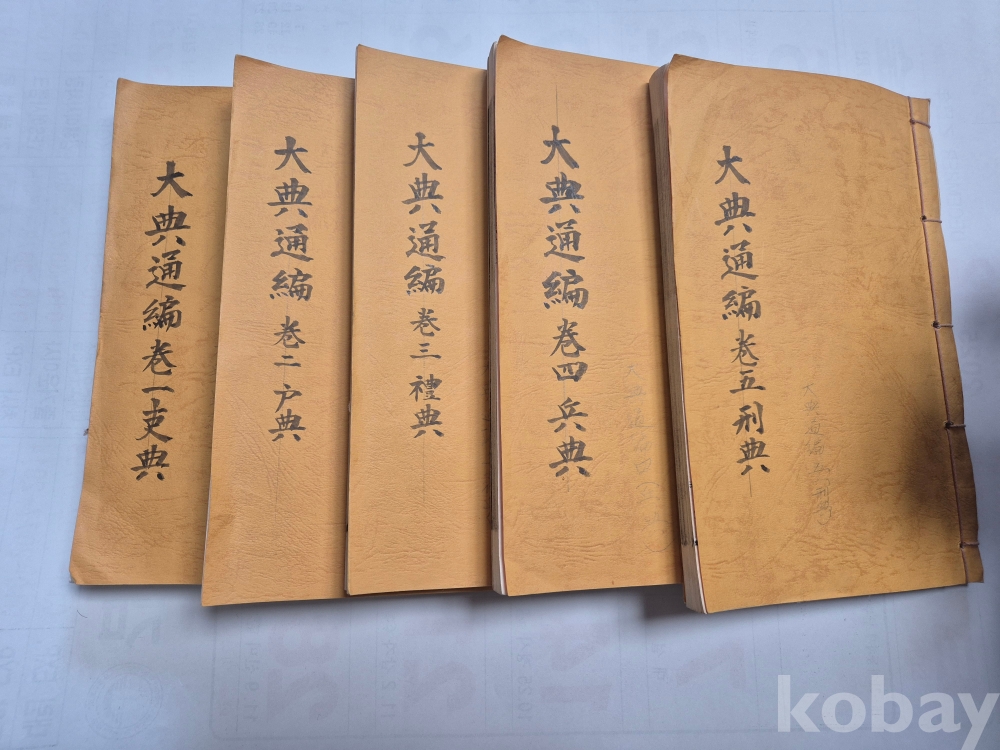 大典通編 卷一 吏典
大典通編 卷二 户典
大典通編 卷三 禮典
大典通編 卷四 兵典
大典通編 卷五 刑典
kobay